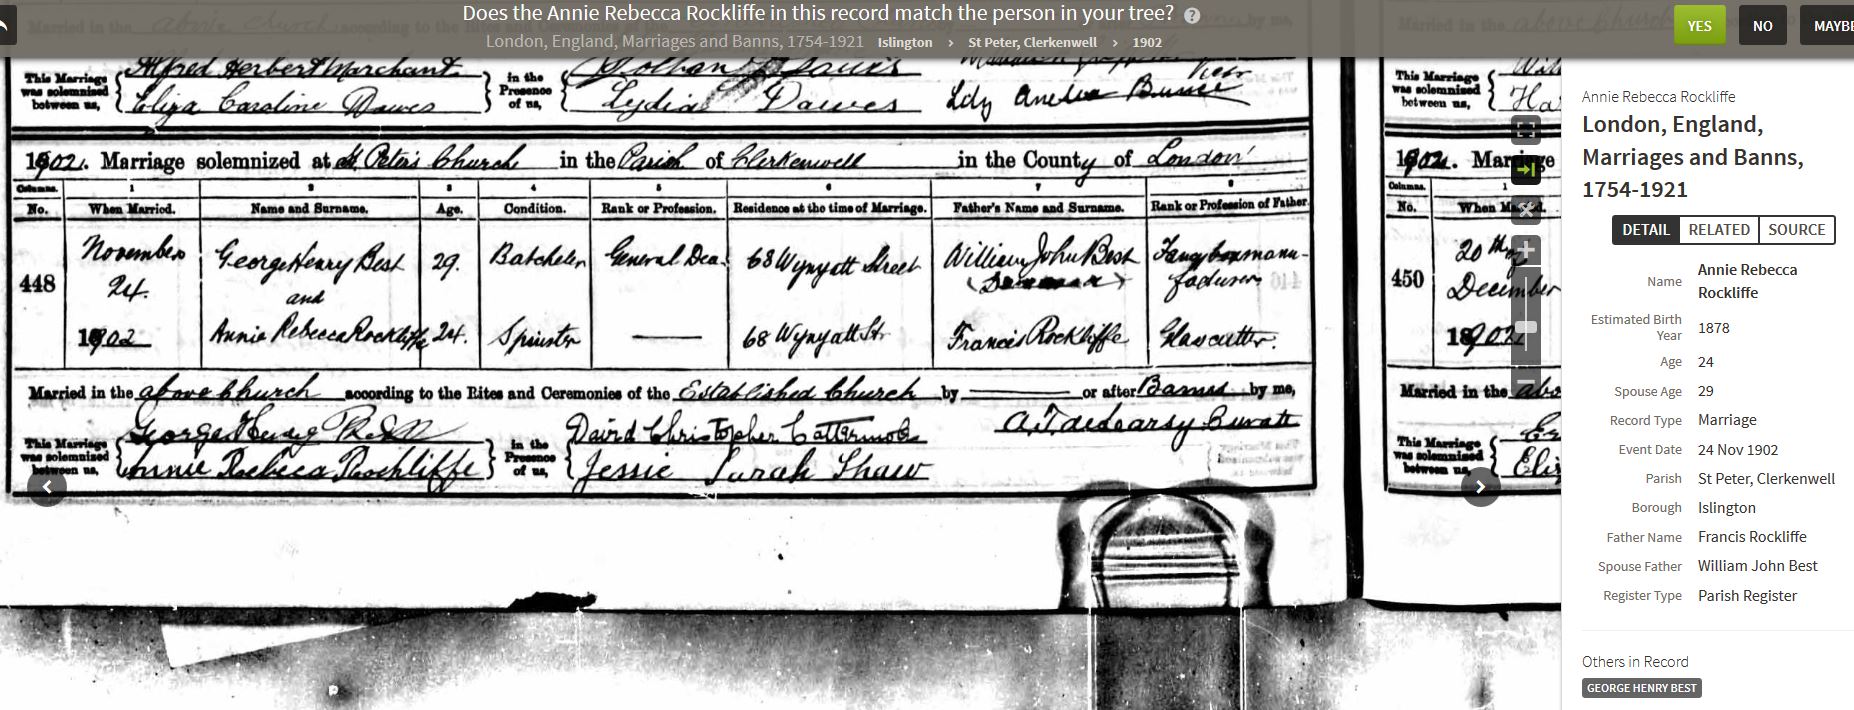 Does the Annie Rebecca Rockliffe in this record match the person in your tree? ?
YES NO MAYBE
London, England, Marriages and Banns, 1754-1921 Islington > St Peter, Clerkenwell > 1902
Married in the above Church according to the Rites and Ceremonies of the by me,
This Marriage was solemnized between us, Alfred Herbert Marchant in the Presence of us, Dawes
Eliza Caroline Dawes Lydia Dawes Lily
1902. Marriage solemnized at St. Peter's Church in the Parish of Clerkenwell in the County of London
Columns. 1 2 3 4 5 6 7 8
No. When Married. Name and Surname. Age. Condition. Rank or Profession. Residence at the time of Marriage. Father's Name and Surname. Rank or Profession of Father.
448 November 24. 1902 George Henry Best 29. Batchelor General Dea. 68 Wynyatt Street William John Best Fancy box manufacturer
and
Annie Rebecca Rockliffe 24. Spinster — 68 Wynyatt St. Francis Rockliffe Glasscutter.
Married in the above Church according to the Rites and Ceremonies of the Established Church by or after Banns by me,
This Marriage was solemnized between us, George Henry Best in the Presence of us, David Christopher Cattermole
Annie Rebecca Rockliffe Jessie Sarah Shaw
Married in the above Church
This Marriage was solemnized between us,
1902. Marriage
Columns. 1
No. When Married.
450 20th December 1902
Married in the
This Marriage was solemnized between us,
Annie Rebecca Rockliffe
London, England,
Marriages and Banns,
1754-1921
DETAIL RELATED SOURCE
Name Annie Rebecca Rockliffe
Estimated Birth Year 1878
Age 24
Spouse Age 29
Record Type Marriage
Event Date 24 Nov 1902
Parish St Peter, Clerkenwell
Borough Islington
Father Name Francis Rockliffe
Spouse Father William John Best
Register Type Parish Register
Others in Record
GEORGE HENRY BEST